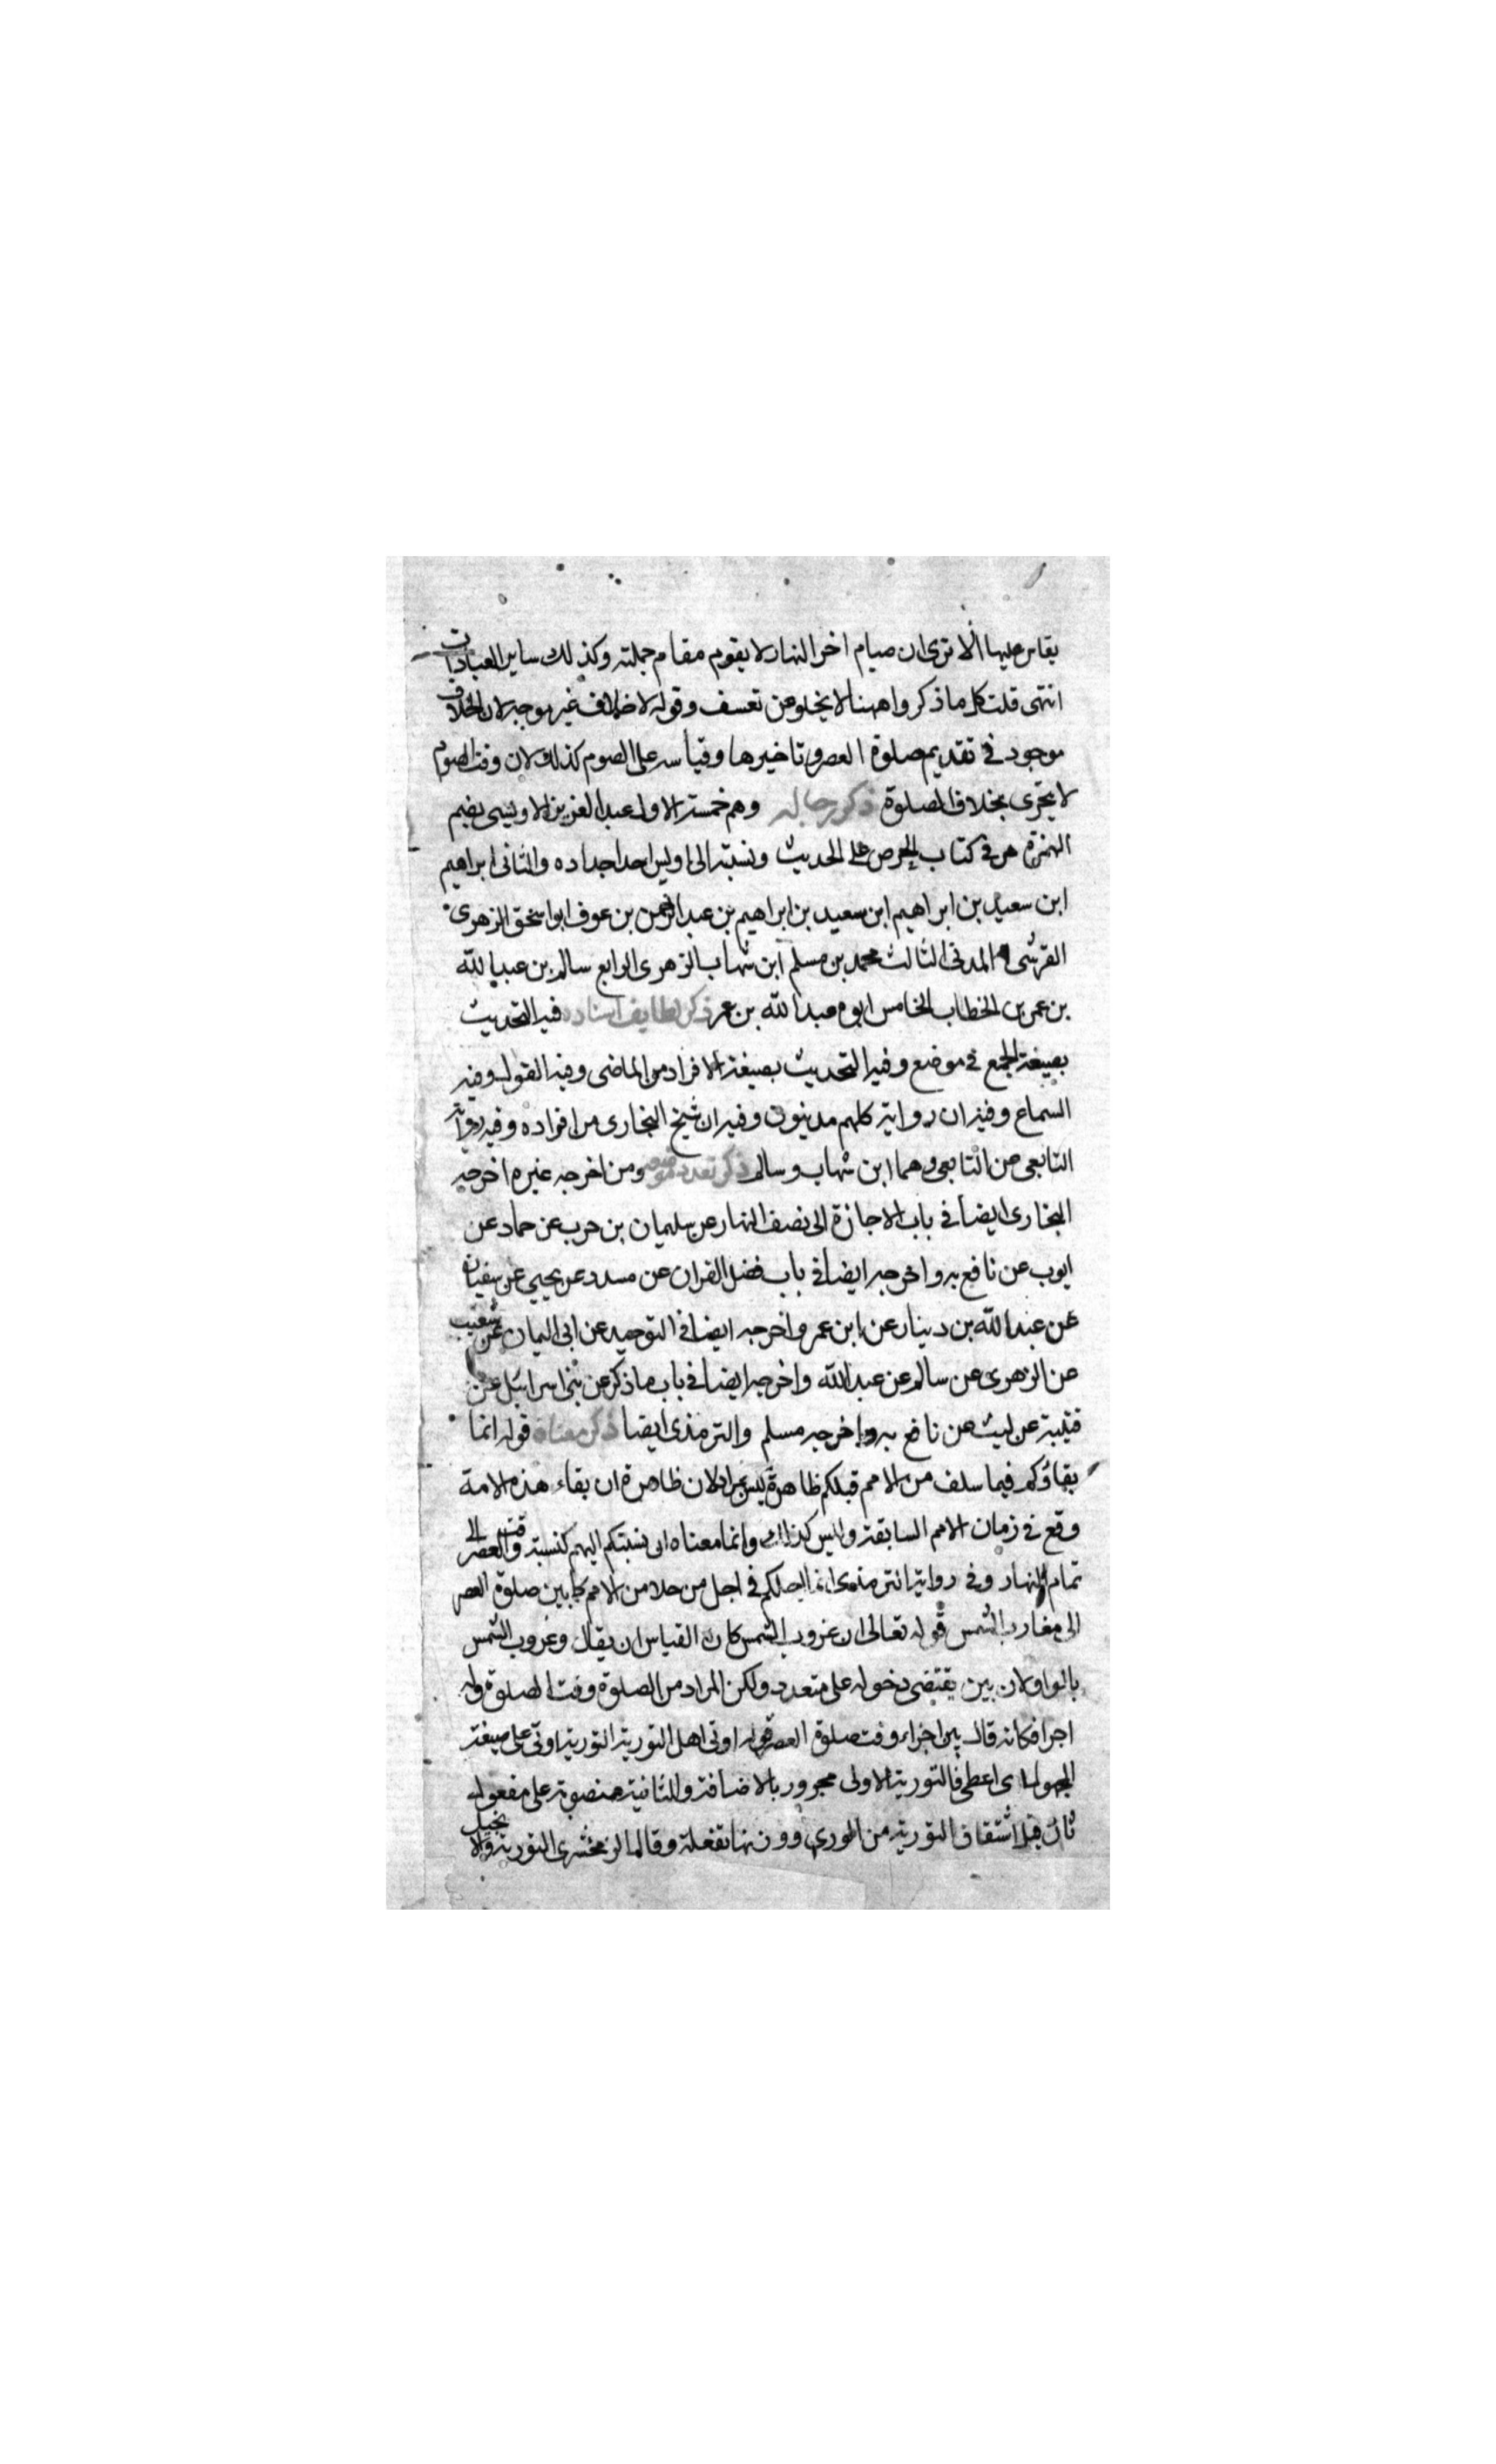 يقاس عليها الا ترى ان صيام اخر النهار لا يقوم مقام جملته وكذلك ساير العبادات
انتهى قلت كل ما ذكروا ههنا لا يخلو من تعسف وقوله لا خلاف غير موجه لان الخلاف
موجود في تقديم صلوة العصر وتاخيرها وقياسه على الصوم كذلك لان وقت الصوم
لا يتجزى بخلاف الصلوة ذكر رجاله وهم خمسة الاول عبد العزيز الاويسى بضم
الهمزة مر في كتاب الحرص على الحديث ونسبته الى اويس احد اجداده والثانى ابراهيم
ابن سعيد بن ابراهيم ابن سعيد بن ابراهيم بن عبد الرحمن بن عوف ابو اسحق الزهرى
القرشى المدنى الثالث محمد بن مسلم ابن شهاب الزهرى الرابع سالم بن عبد الله
بن عمر بن الخطاب الخامس ابوه عبد الله بن عمر ذكر لطايف اسناده فيه التحديث
بصيغة الجمع في موضع وفيه التحديث بصيغة الافراد من الماضى وفيه القول وفيه
السماع وفيه ان رواية كلهم مدنيون وفيه ان شيخ البخارى من افراده وفيه رواية
التابعى من التابعى وهما ابن شهاب وسالم ذكر تعدد موضعه ومن اخرجه غيره اخرجه
البخارى ايضا في باب الاجازة الى نصف النهار عن سليمان بن حرب عن حماد عن
ايوب عن نافع به واخرجه ايضا في باب فضل القران عن مسدد عن يحيى عن سفيان
عن عبد الله بن دينار عن ابن عمر واخرجه ايضا في التوحيد عن ابى اليمان عن شعيب
عن الزهرى عن سالم عن عبد الله واخرجه ايضا في باب ما ذكر عن بنى اسرائيل عن
قتيبة عن ليث عن نافع به واخرجه مسلم والترمذى ايضا ذكر معناه قوله انما
بقاؤكم فيما سلف من الامم قبلكم ظاهره ليس بمراد لان ظاهره ان بقاء هذه الامة
وقع في زمان الامم السابقة وليس كذلك وانما معناه ان نسبتكم اليهم كنسبة وقت العصر الى
تمام النهار وفي رواية الترمذى انما اجلكم في اجل من خلا من الامم كما بين صلوة العصر
الى مغارب الشمس قوله تعالى ان غروب الشمس كان القياس ان يقال وغروب الشمس
بالواو لان بين يقتضى دخوله على متعدد ولكن المراد من الصلوة وقت الصلوة وله
اجزا فكانه قال بين اجزاء وقت صلوة العصر قوله اوتى اهل التورية التورية اوتى على صيغة
المجهول اى اعطى فالتورية الاولى مجرور بالاضافة والثانية منصوبة على مفعول
ثان قيل اشتقاق التورية من الورى ووزنها تفعلة وقال الزمخشرى التورية والانجيل